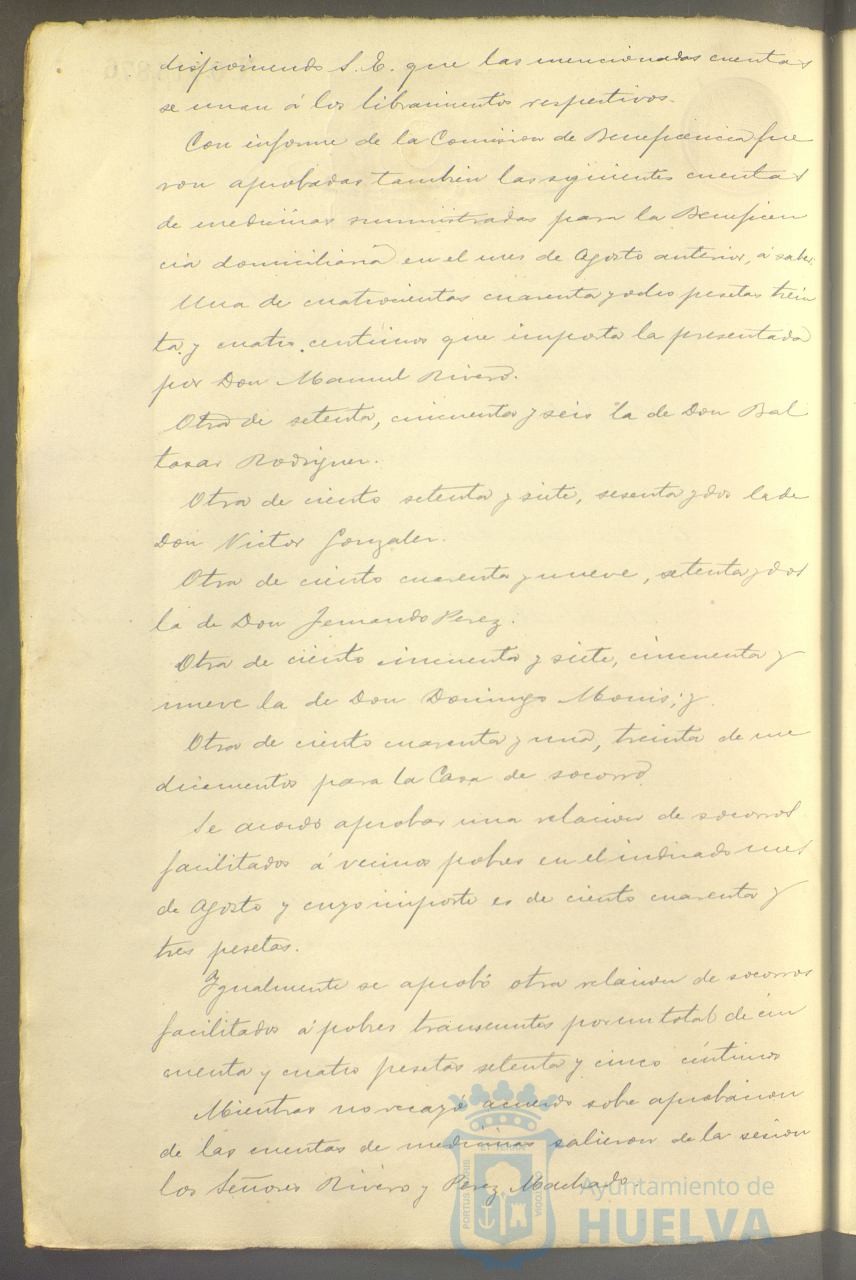 disponiendo S. E. que las mencionadas cuentas
se unan á los libramientos respectivos.
Con informe de la Comision de Beneficencia fue
ron aprobadas tambien las siguientes cuentas
de medicinas suministradas para la Beneficen
cia domiciliaria en el mes de Agosto anterior, á saber:
Una de cuatrocientas cuarenta y ocho pesetas trein
ta y cuatro centimos que importa la presentada
por Don Manuel Rivero.
Otra de setenta, cincuenta y seis la de Don Bal
tasar Rodriguez.
Otra de ciento setenta y siete, sesenta y dos la de
Don Victor Gonzalez.
Otra de ciento cuarenta y nueve, setenta y dos
la de Don Fernando Perez.
Otra de ciento cincuenta y siete, cincuenta y
nueve la de Don Domingo Monis; y
Otra de ciento cuarenta y una, treinta de me
dicamentos para la Casa de socorro.
Se acordó aprobar una relacion de socorros
facilitados á vecinos pobres en el indicado mes
de Agosto y cuyo importe es de ciento cuarenta y
tres pesetas.
Igualmente se aprobó otra relacion de socorros
facilitados á pobres transeuntes por un total de cin
cuenta y cuatro pesetas setenta y cinco céntimos
Mientras no recayó acuerdo sobre aprobacion
de las cuentas de medicinas salieron de la sesion
los Señores Rivero y Perez Machado.
PORTUS MARIS ET TERRAE CUSTODIA
Ayuntamiento de
HUELVA